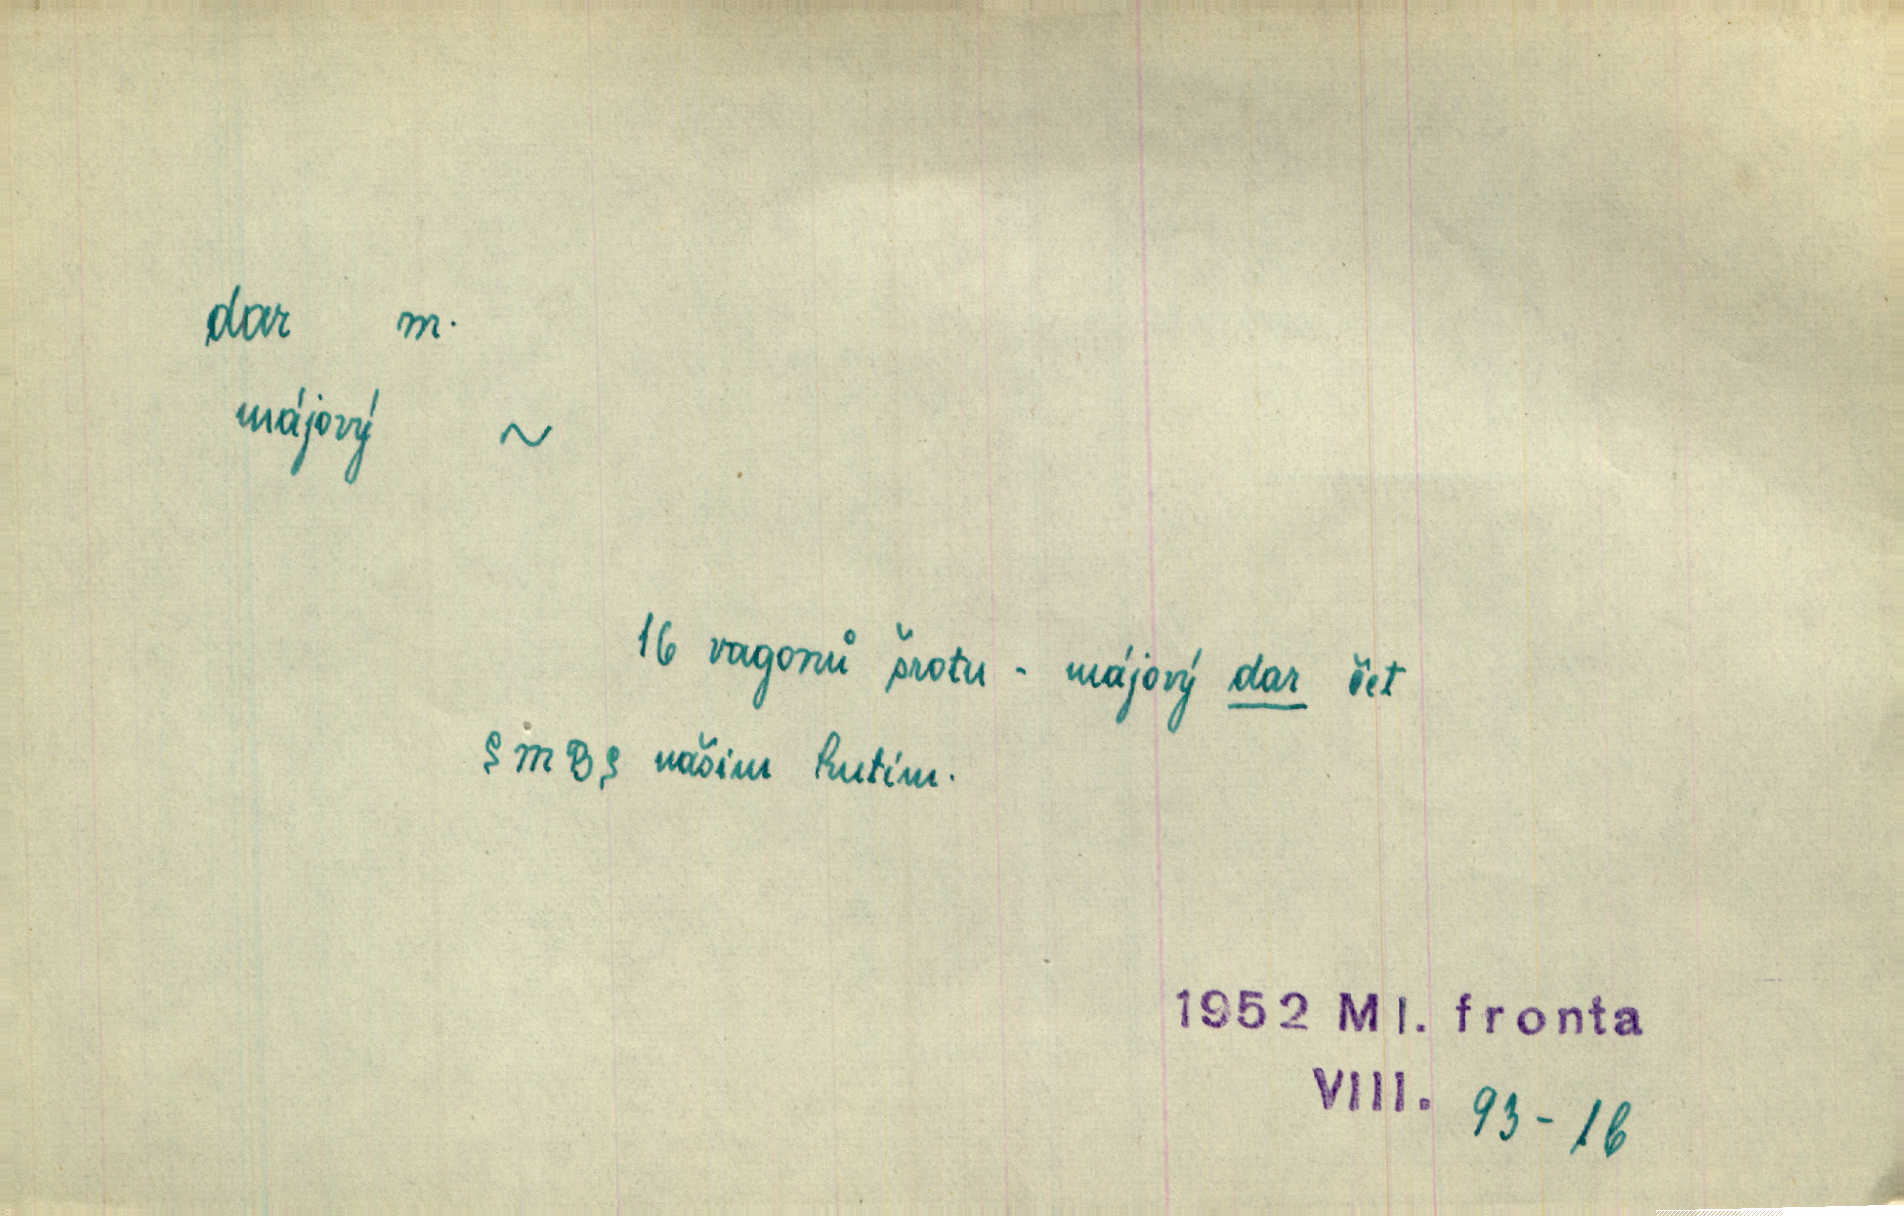 dar m.
májový ~
16 vagonů šrotu - májový dar čet
SMBS našim hutím.
1952 Ml. fronta
VIII. 93-16